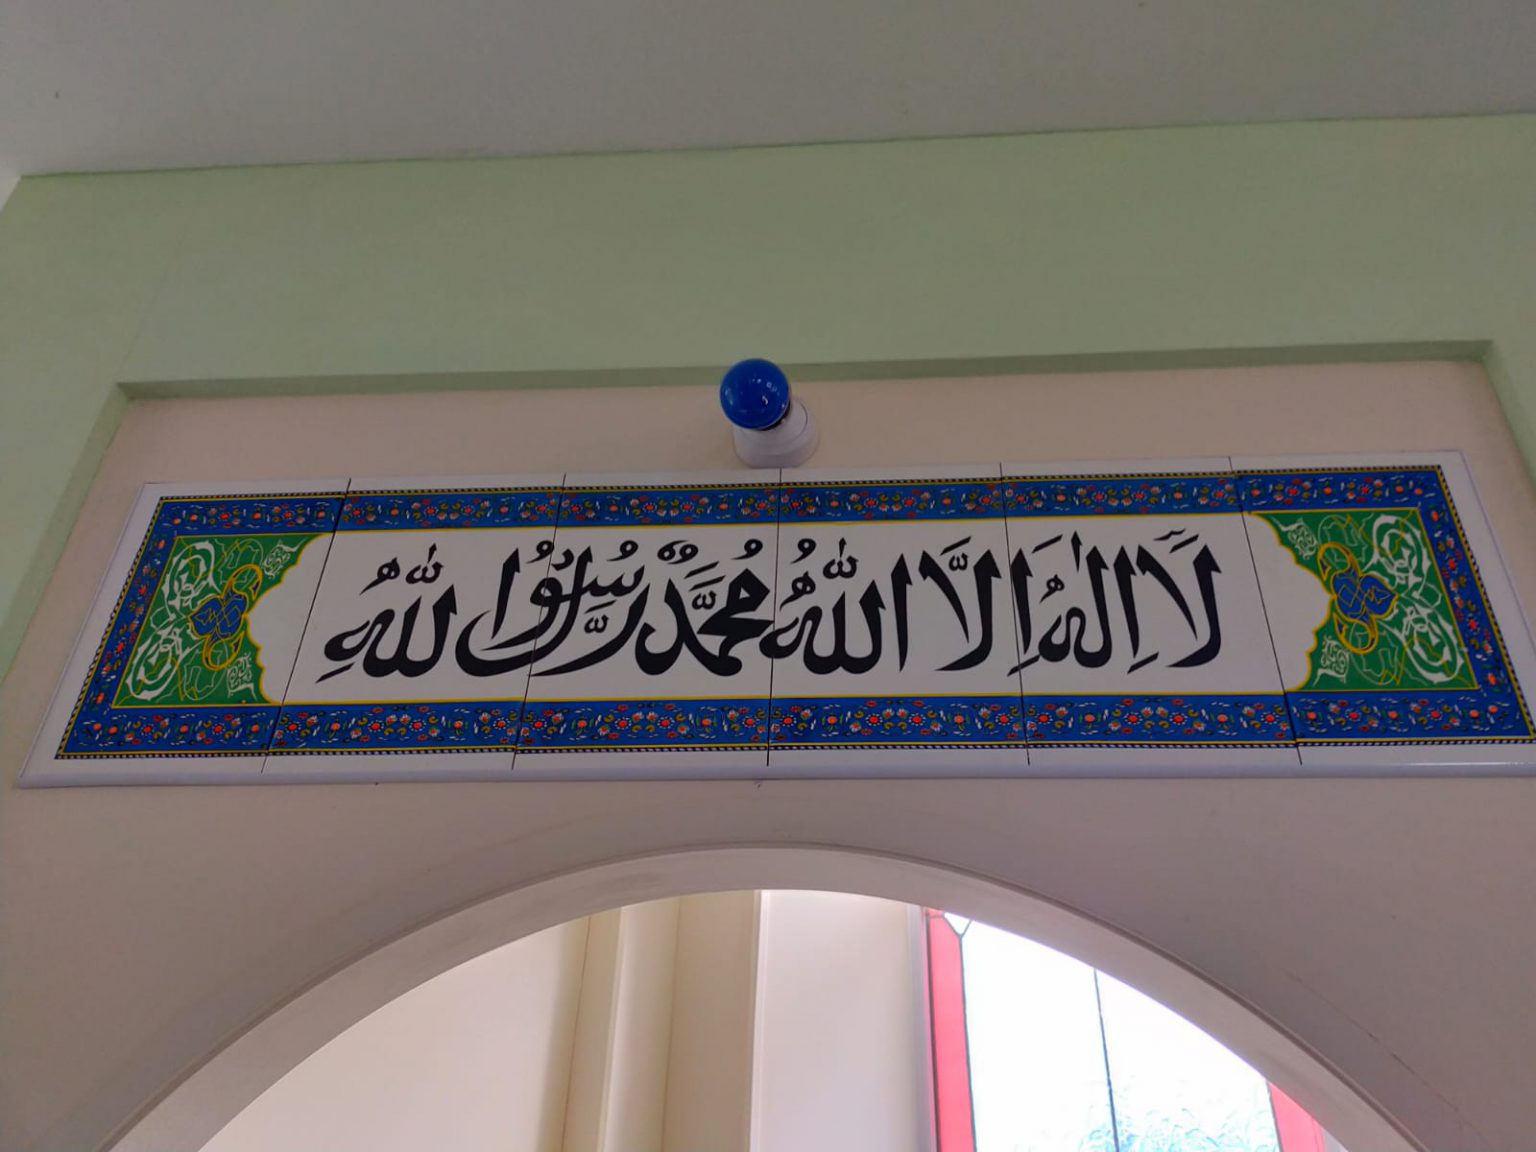 لَا اِلٰهَ اِلَّا اللّٰهُ مُحَمَّدٌ رَسُولُ اللّٰهِ